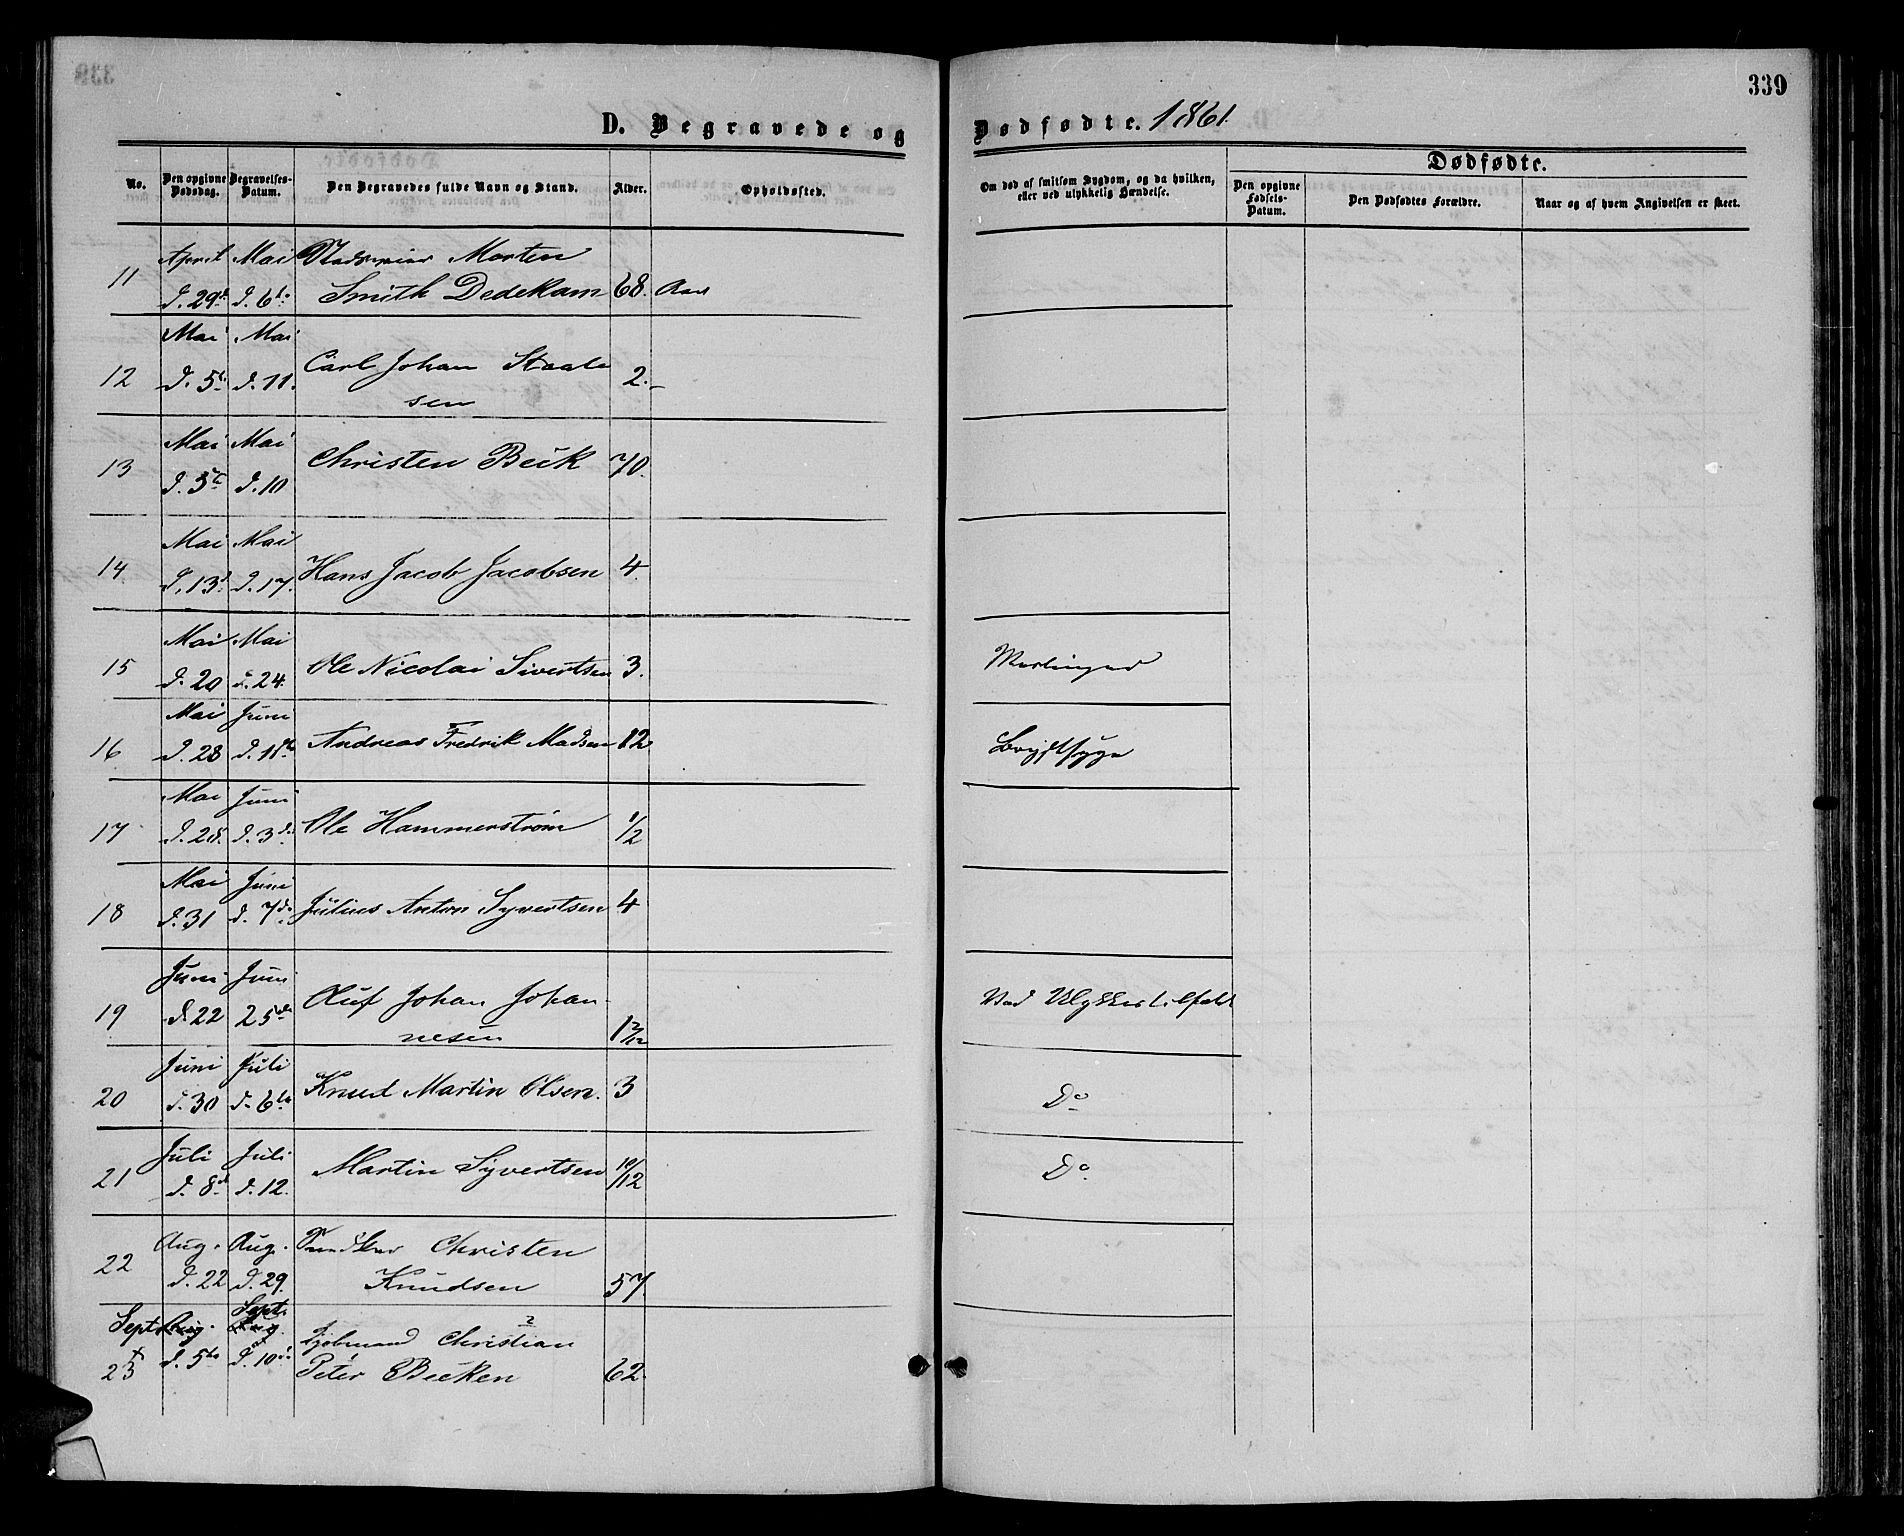 339
D. Begravede og Dødfødte. 1861.
No.
Den opgivne Dødsdag.
Begravelses-Datum.
Den Begravedes fulde Navn og Stand.
Alder.
Opholdssted.
Om død af smitsom Sygdom, og da hvilken, eller ved ulykkelig Hændelse.
Dødfødte.
Den opgivne Fødsels-Datum.
Den Dødfødtes Forældre.
Naar og af hvem Angivelsen er skeet.
April Mai Morten
11 d. 29d d. 6te Smith Dedekam 68. Aar
Mai Mai
12 d. 5te d. 11. Carl Johan Staale 2.-
sen
Mai Mai
13 d. 5te d. 10 Christen Beck 70.
Mai Mai
14 d. 13d d. 17. Hans Jacob Jacobsen 4.
Mai Mai
15 d. 20 d. 24. Ole Nicolai Sivertsen 3. Meslinger
Mai Juni
16 d. 28 d. 1ste Andreas Fredrik Madsen 12 Brystsyge
Mai Juni
17 d. 28. d. 3de Ole Hammerstrøm 1/2
Mai Juni
18 d. 31 d. 7de Julius Anton Syvertsen 4
Juni Juni
19 d. 22 25de Oluf Johan Johan- Ved Ulykkestilfeld
nesen
Juni Juli
20 d. 30 d. 6te Knud Martin Olsen. 3 Do
Juli Juli
21 d. 8d d. 12. Martin Syvertsen 10/12 Do.
Aug. Aug. Christen
22 d. 22 d. 29. Knudsen 57.
Sept. Aug. Sept. Aug. Christian
23 d. 5te d. 10d Peter Becken 62.